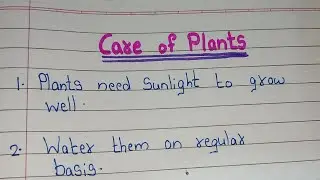 Care of Plants
1. Plants need Sunlight to grow
well.
2. Water them on regular
basis.